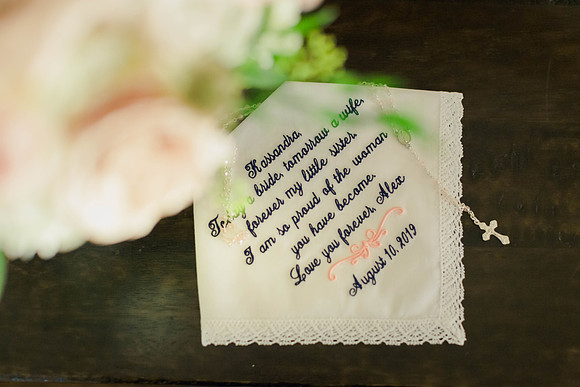 Kassandra,
Today a bride, tomorrow a wife,
forever my little sister.
I am so proud of the woman
you have become.
Love you forever, Alex
August 10, 2019